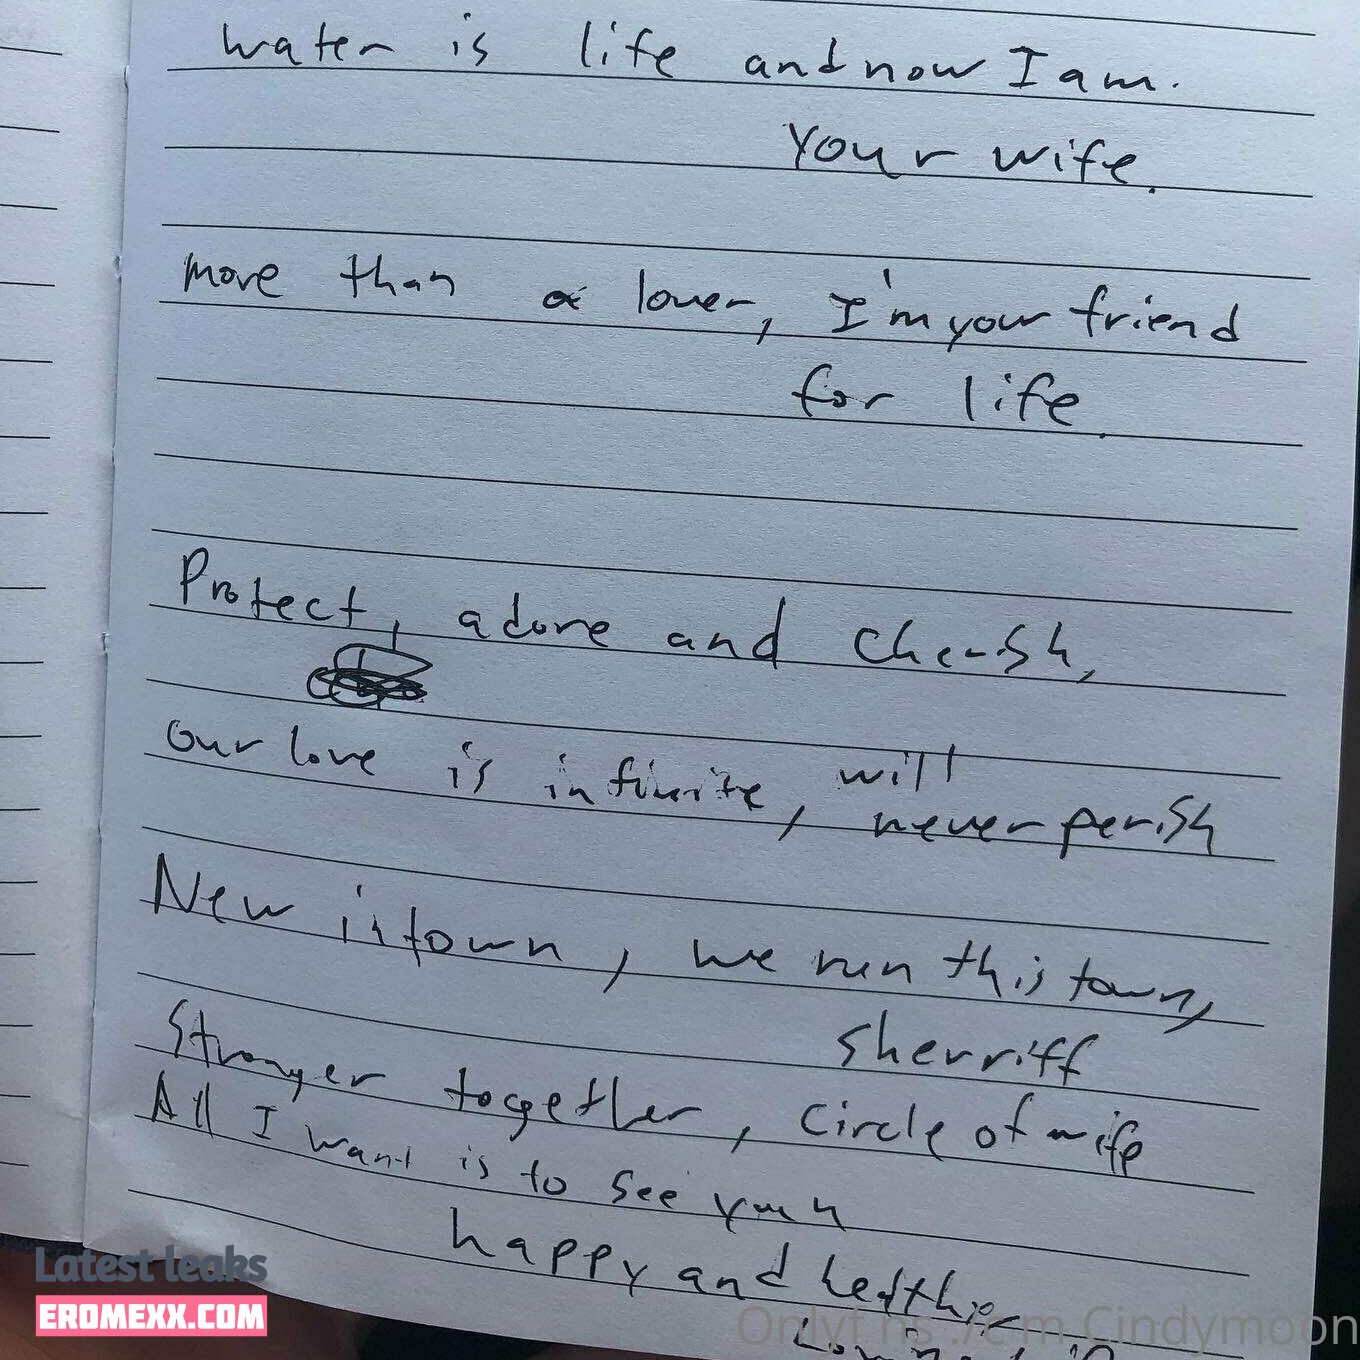 water is life and now I am.
your wife.
more than a lover, I'm your friend
for life.
Protect, adore and cherish,
our love is infinite, will
never perish
New is town, we run this town,
sherriff
Stronger together, circle of wife
All I want is to see you
happy and
Latest leaks
EROMEXX.COM
Cindymoon